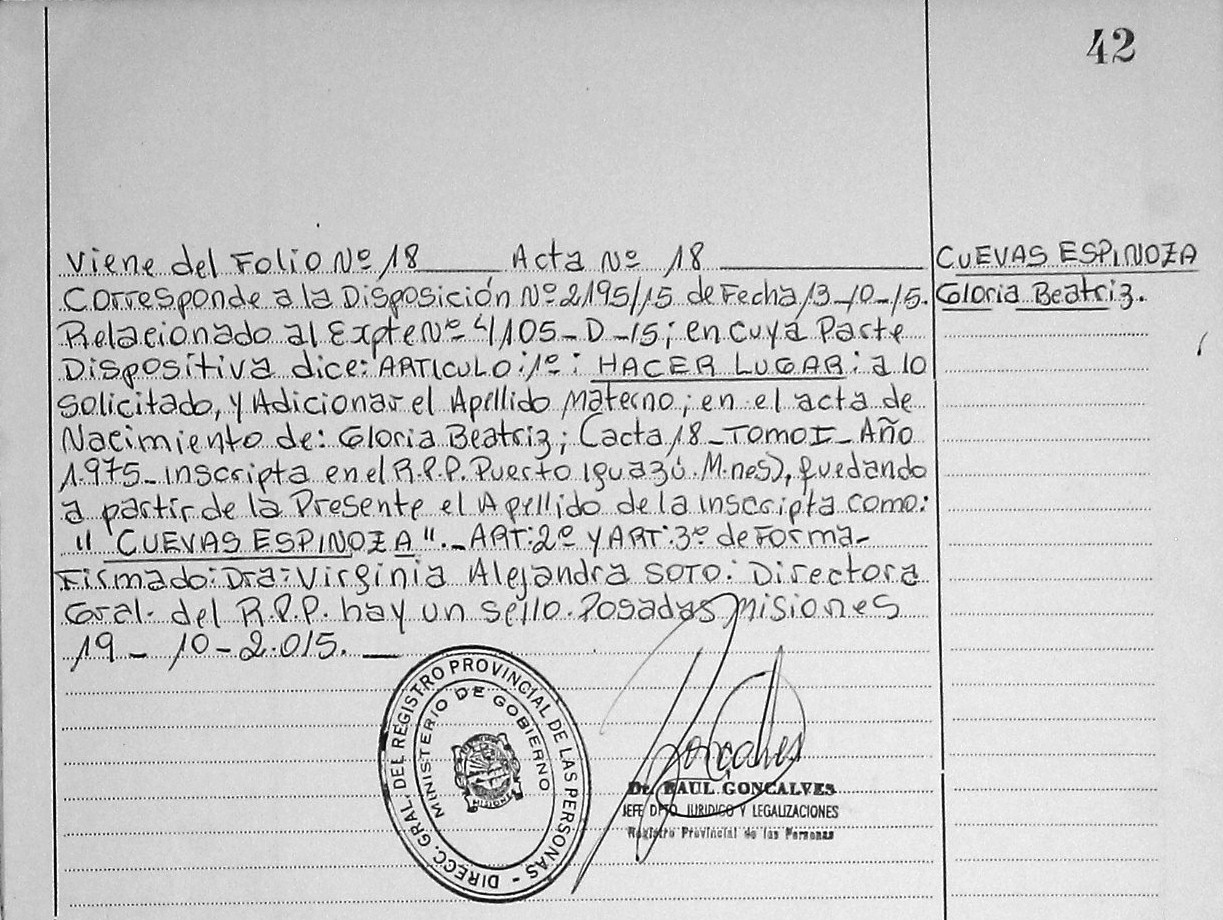 42
Viene del Folio Nº 18 Acta Nº 18
CUEVAS ESPINOZA
Gloria Beatriz.
Corresponde a la Disposición Nº 2195/15 de Fecha 13-10-15.
Relacionado al Expte Nº 4105-D-15; en cuya Parte
Dispositiva dice: ARTICULO: 1º: HACER LUGAR; a lo
solicitado, y Adicionar el Apellido Materno; en el acta de
Nacimiento de: Gloria Beatriz; (acta 18-TOMO I-Año
1.975-inscripta en el R.P.P. Puerto Iguazú. Mnes), quedando
a partir de la Presente el Apellido de la inscripta como:
"CUEVAS ESPINOZA".- ART:2º Y ART:3º de Forma-
Firmado: Dra: Virginia Alejandra SOTO: Directora
Gral. del R.P.P. hay un sello. Posadas Misiones
19- 10-2.015.
DIRECC. GRAL. DEL REGISTRO PROVINCIAL DE LAS PERSONAS -
MINISTERIO DE GOBIERNO
MISIONES
Goncalves
Dr. RAUL GONCALVES
JEFE DPTO. JURIDICO Y LEGALIZACIONES
Registro Provincial de las Personas